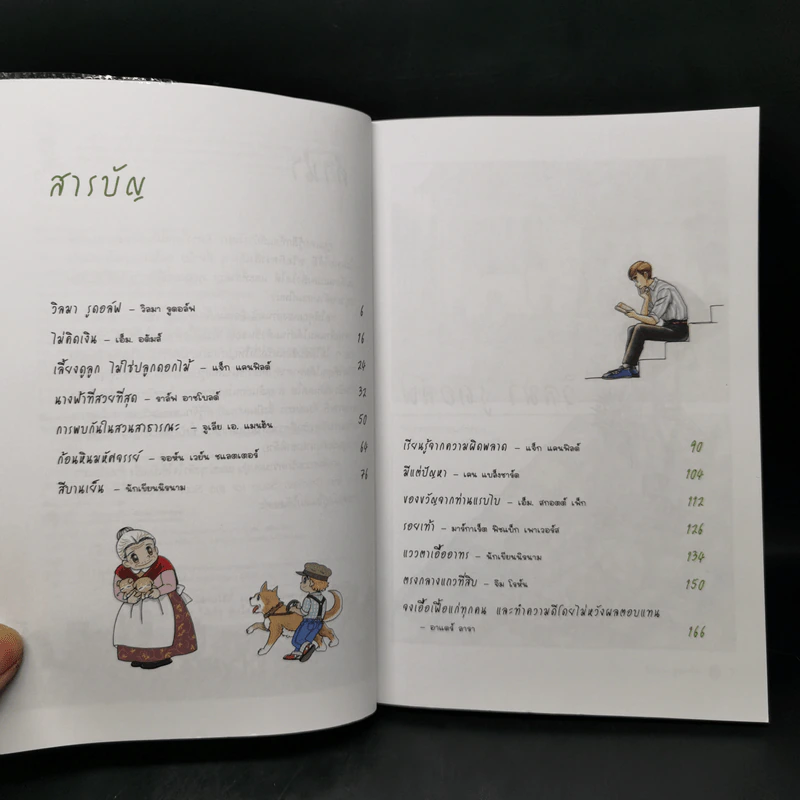 สารบัญ
วิลมา รูดอล์ฟ – วิลมา รูดอล์ฟ 6
ไม่คิดเงิน – เอ็ม. อดัมส์ 16
เลี้ยงดูลูก ไม่ใช่ปลูกดอกไม้ – แจ็ก แคนฟิลด์ 24
นางฟ้าที่สวยที่สุด – ราล์ฟ อาชโบลด์ 32
การพบกันในสวนสาธารณะ – จูเลีย เอ. แมนฮัน 50
ก้อนหินมหัศจรรย์ – จอห์น เวย์น ชแลตเตอร์ 64
สีบานเย็น – นักเขียนนิรนาม 76
เรียนรู้จากความผิดพลาด – แจ็ก แคนฟิลด์ 90
มีแต่ปัญหา – เคน แบล็งชาร์ด 104
ของขวัญจากท่านแรบไบ – เอ็ม. สกอตต์ เพ็ก 112
รอยเท้า – มาร์กาเร็ต ฟิชแบ็ก เพาเวอร์ส 126
แววตาเอื้ออาทร – นักเขียนนิรนาม 134
ตรงกลางแถวที่สิบ – จิม โรห์น 150
จงเอื้อเฟื้อแก่ทุกคน และทำความดีโดยไม่หวังผลตอบแทน
– อาแดร์ ลารา 166